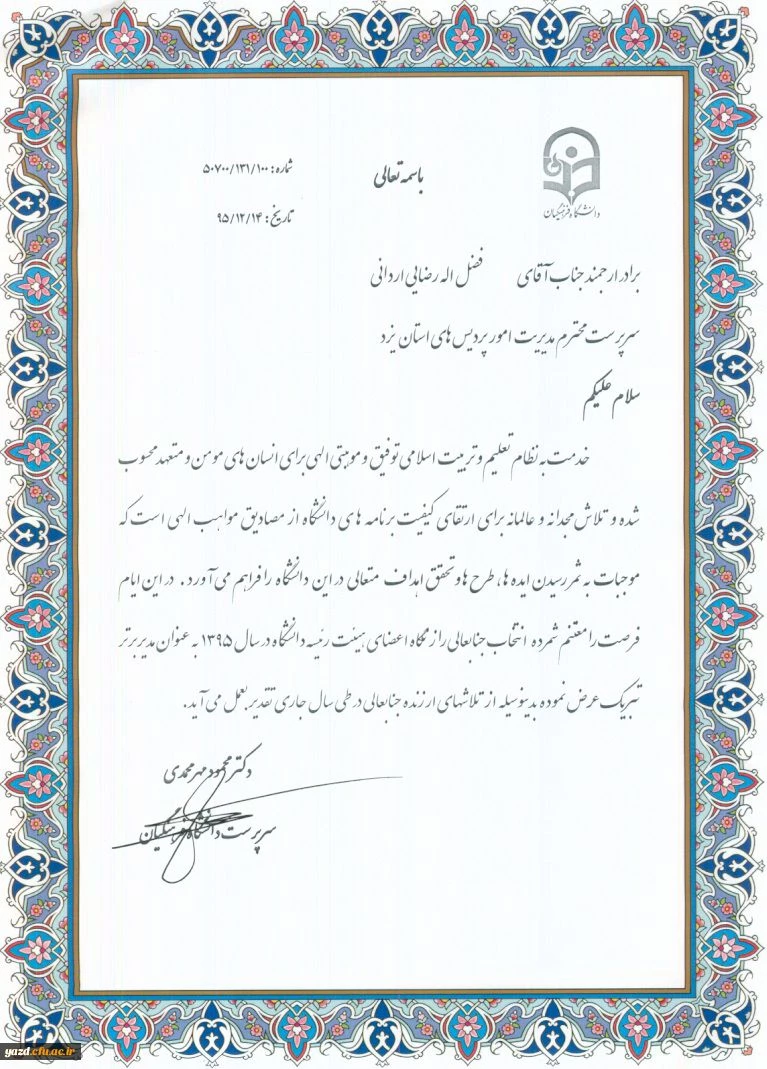 باسمه تعالی
شماره: ۵۰۷۰۰/۱۳۱/۱۰۰
تاریخ: ۹۵/۱۲/۱۴
دانشگاه فرهنگیان
برادر ارجمند جناب آقای فضل اله رضایی اردانی
سرپرست محترم مدیریت امور پردیس های استان یزد
سلام علیکم
خدمت به نظام تعلیم و تربیت اسلامی توفیق و موهبتی الهی برای انسان های مومن و متعهد محسوب
شده و تلاش مجدانه و عالمانه برای ارتقای کیفیت برنامه های دانشگاه از مصادیق مواهب الهی است که
موجبات به ثمر رسیدن ایده ها، طرح ها و تحقق اهداف متعالی در این دانشگاه را فراهم می آورد. در این ایام
فرصت را مغتنم شمرده انتخاب جنابعالی را از نگاه اعضای هیئت رئیسه دانشگاه در سال ۱۳۹۵ به عنوان مدیر برتر
تبریک عرض نموده بدینوسیله از تلاشهای ارزنده جنابعالی در طی سال جاری تقدیر بعمل می آید.
دکتر محمود مهرمحمدی
سرپرست دانشگاه فرهنگیان
yazd.cfu.ac.ir